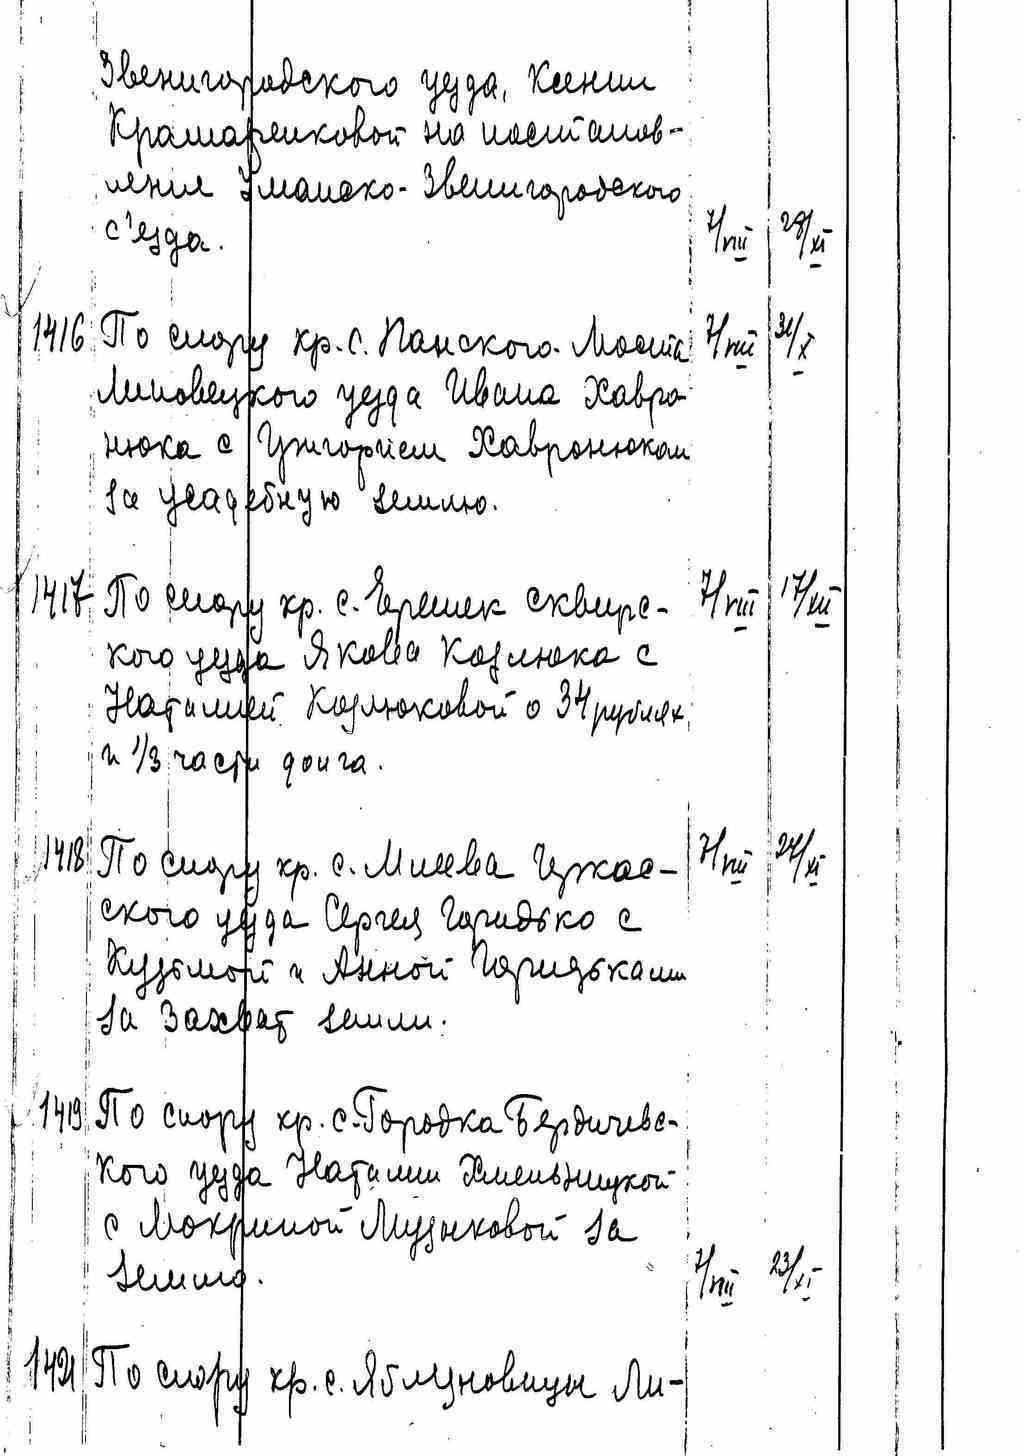 Звенигородского уезда, Ксении
Крамаренковой на постанов-
ления Уманско-Звенигородского
с'езда. 7/VIII 29/XI
1416 По спору кр. с. Панского-Моста 7/VIII 31/X
Липовецкого уезда Ивана Хавро-
нюка с Григорием Хавронюком
за усадебную землю.
1417 По спору кр. с. Ерчек сквирс- 7/VIII 17/XII
кого уезда Якова Козлюка с
Наталией Козлюковой о 34 рублях
и 1/3 части долга.
1418 По спору кр. с. Млеева Черкас- 7/VIII 24/XI
ского уезда Сергея Гаридько с
Кузьмой и Анной Гаридьками
за захват земли.
1419 По спору кр. с. Городка Бердичевс-
кого уезда Наталии Хмельницкой
с Мокриной Музыковой за
землю. 7/VIII 23/XI
1421 По спору кр. с. Яблуновицы Ли-